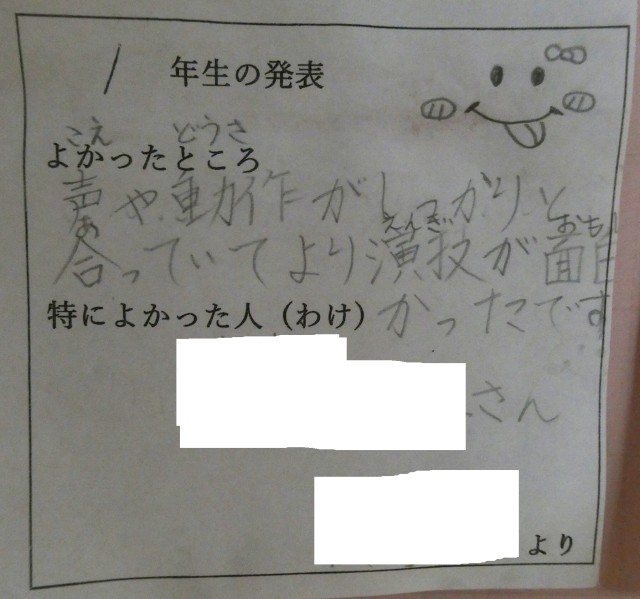 1 年生の発表
こえ どうさ
よかったところ
声や動作がしっかりと
あ えんぎ おもしろ
合っていてより演技が面白
特によかった人（わけ）かったです
さん
より